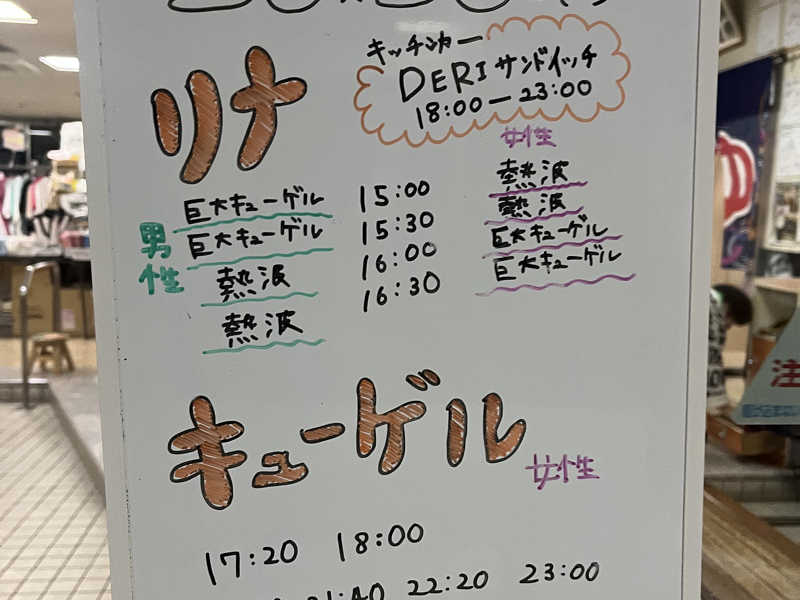 キッチンカー
DERI サンドイッチ
18:00 ー 23:00
リナ
女性
男性
巨大キューゲル 15:00 熱波
巨大キューゲル 15:30 熱波
熱波 16:00 巨大キューゲル
熱波 16:30 巨大キューゲル
キューゲル
女性
17:20 18:00
22:20 23:00
注